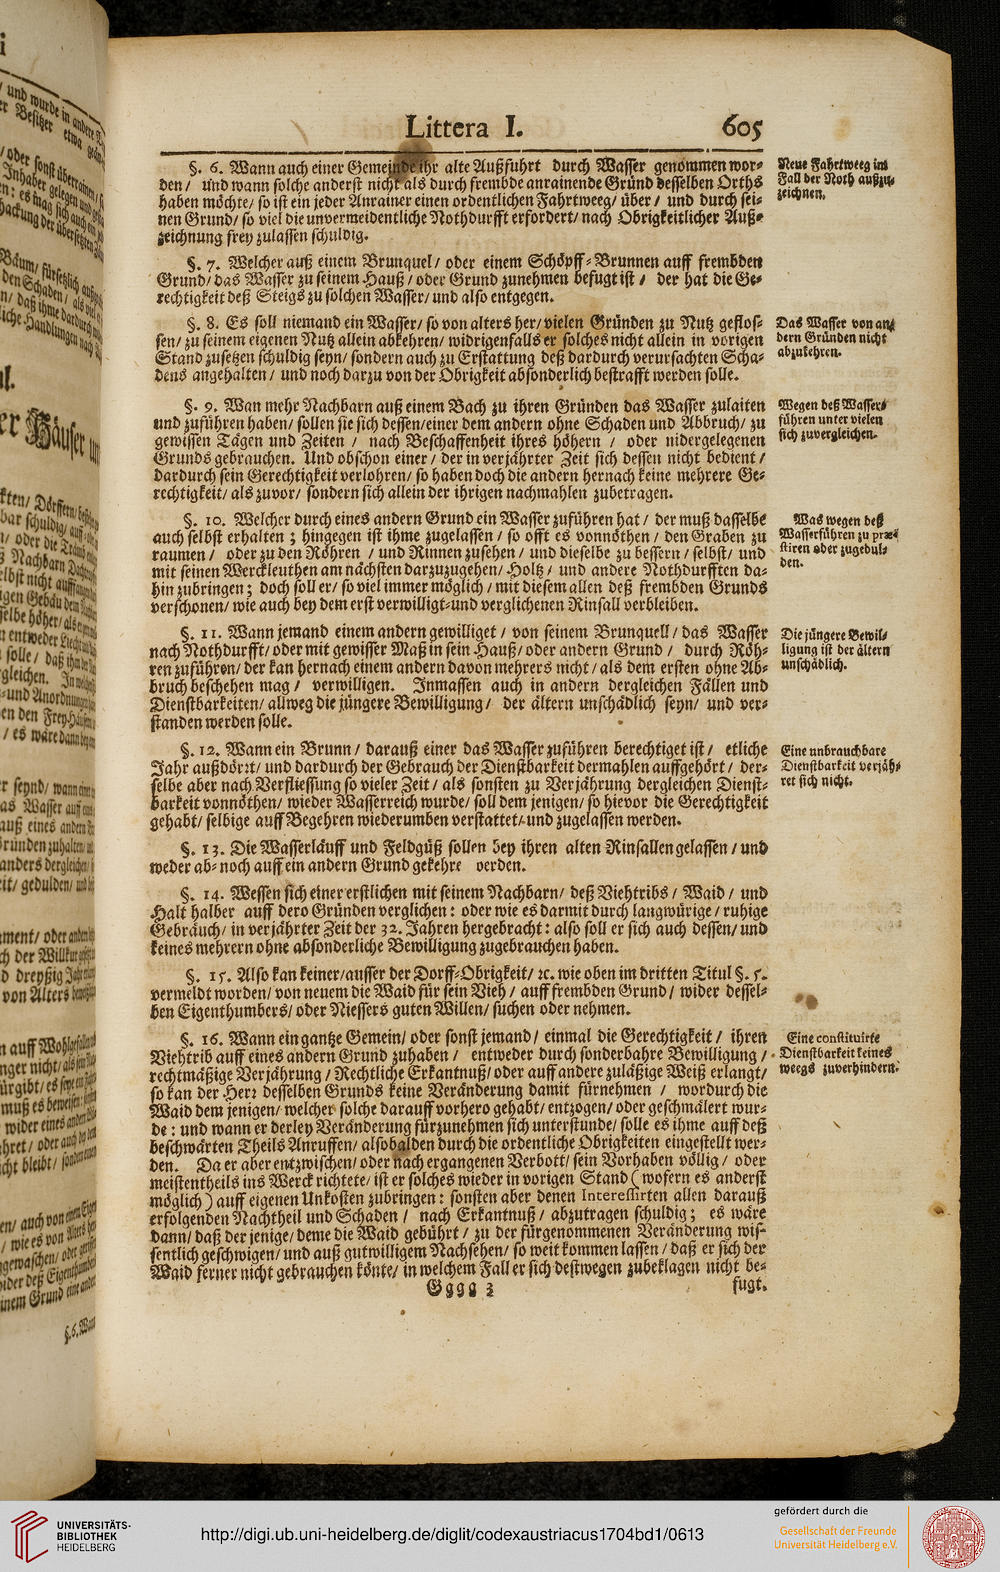 Littera I. 605
§. 6. Wann auch einer Gemeinde ihr alte Außfuhrt durch Wasser genommen wor-
den / und wann solche anderst nicht als durch frembde anrainende Gründ desselben Orths
haben möchte/ so ist ein jeder Anrainer einen ordentlichen Fahrtweeg/ über / und durch sei-
nen Grund/ so viel die unvermeidentliche Nothdurfft erfordert/ nach Obrigkeitlicher Auß-
zeichnung frey zulassen schuldig.
Neue Fahrtweeg im
Fall der Noth außzu-
zeichnen.
§. 7. Welcher auß einem Brunquel/ oder einem Schöpff-Brunnen auff frembden
Grund/ das Wasser zu seinem Hauß / oder Grund zunehmen befugt ist / der hat die Ge-
rechtigkeit deß Steigs zu solchen Wasser/ und also entgegen.
§. 8. Es soll niemand ein Wasser/ so von alters her/ vielen Gründen zu Nutz geflos-
sen/ zu seinem eigenen Nutz allein abkehren/ widrigenfalls er solches nicht allein in vorigen
Stand zusetzen schuldig seyn/ sondern auch zu Erstattung deß dardurch verursachten Scha-
dens angehalten / und noch darzu von der Obrigkeit absonderlich bestrafft werden solle.
Das Wasser von an-
dern Gründen nicht
abzukehren.
§. 9. Wan mehr Nachbarn auß einem Bach zu ihren Gründen das Wasser zulaiten
und zuführen haben/ sollen sie sich dessen/ einer dem andern ohne Schaden und Abbruch/ zu
gewissen Tägen und Zeiten / nach Beschaffenheit ihres höhern / oder nidergelegenen
Grunds gebrauchen. Und obschon einer / der in verjährter Zeit sich dessen nicht bedient /
dardurch sein Gerechtigkeit verlohren/ so haben doch die andern hernach keine mehrere Ge-
rechtigkeit/ als zuvor/ sondern sich allein der ihrigen nachmahlen zubetragen.
Wegen deß Wasser-
führen unter vielen
sich zuvergleichen.
§. 10. Welcher durch eines andern Grund ein Wasser zuführen hat / der muß dasselbe
auch selbst erhalten ; hingegen ist ihme zugelassen / so offt es vonnöthen / den Graben zu
raumen / oder zu den Röhren / und Rinnen zusehen / und dieselbe zu bessern / selbst/ und
mit seinen Werckleuthen am nächsten darzuzugehen/ Holtz / und andere Nothdurfften da-
hin zubringen ; doch soll er/ so viel immer möglich / mit diesem allen deß frembden Grunds
verschonen/ wie auch bey dem erst verwilligt-und verglichenen Rinsall verbleiben.
Was wegen deß
Wasserführen zu præ-
stiren oder zugedul-
den.
§. 11. Wann jemand einem andern gewilliget / von seinem Brunquell/ das Wasser
nach Nothdurfft/ oder mit gewisser Maß in sein Hauß/ oder andern Grund / durch Röh-
ren zuführen/ der kan hernach einem andern davon mehrers nicht / als dem ersten ohne Ab-
bruch beschehen mag / verwilligen. Inmassen auch in andern dergleichen Fällen und
Dienstbarkeiten/ allweg die jüngere Bewilligung / der ältern unschädlich seyn/ und ver-
standen werden solle.
Die jüngere Bewil-
ligung ist der ältern
unschädlich.
§. 12. Wann ein Brunn / darauß einer das Wasser zuführen berechtiget ist / etliche
Jahr außdörrt/ und dardurch der Gebrauch der Dienstbarkeit dermahlen auffgehört / der-
selbe aber nach Verfliessung so vieler Zeit / als sonsten zu Verjährung dergleichen Dienst-
barkeit vonnöthen/ wieder Wasserreich wurde/ soll dem jenigen/ so hievor die Gerechtigkeit
gehabt/ selbige auff Begehren wiederumben verstattet/-und zugelassen werden.
Eine unbrauchbare
Dienstbarkeit verjäh-
ret sich nicht.
§. 13. Die Wasserläuff und Feldgüß sollen bey ihren alten Rinsallen gelassen / und
weder ab-noch auff ein andern Grund gekehre oerden.
§. 14. Wessen sich einer erstlichen mit seinem Nachbarn/ deß Viehtribs / Waid / und
Halt halber auff dero Gründen verglichen : oder wie es darmit durch langwürige / ruhige
Gebräuch/ in verjährter Zeit der 32. Jahren hergebracht : also soll er sich auch dessen/ und
keines mehrern ohne absonderliche Bewilligung zugebrauchen haben.
§. 15. Also kan keiner/ ausser der Dorff-Obrigkeit/ ꝛc. wie oben im dritten Titul §. 5.
vermeldt worden/ von neuem die Waid für sein Vieh / auff frembden Grund / wider dessel-
ben Eigenthumbers/ oder Niessers guten Willen/ suchen oder nehmen.
§. 16. Wann ein gantze Gemein/ oder sonst jemand / einmal die Gerechtigkeit / ihren
Viehtrib auff eines andern Grund zuhaben / entweder durch sonderbahre Bewilligung /
rechtmäßige Verjährung / Rechtliche Erkantnuß/ oder auff andere zuläßige Weiß erlangt/
so kan der Herr desselben Grunds keine Veränderung damit fürnehmen / wordurch die
Waid dem jenigen/ welcher solche darauff vorhero gehabt/ entzogen/ oder geschmälert wur-
de : und wann er derley Veränderung fürzunehmen sich unterstunde/ solle es ihme auff deß
beschwärten Theils Anruffen/ alsobalden durch die ordentliche Obrigkeiten eingestellt wer-
den. Da er aber entzwischen/ oder nach ergangenen Verbott/ sein Vorhaben völlig / oder
meistentheils ins Werck richtete/ ist er solches wieder in vorigen Stand ( wofern es anderst
möglich ) auff eigenen Unkosten zubringen : sonsten aber denen Interessirten allen darauß
erfolgenden Nachtheil und Schaden / nach Erkantnuß / abzutragen schuldig ; es wäre
dann/ daß der jenige/ deme die Waid gebührt / zu der fürgenommenen Veränderung wis-
sentlich geschwigen/ und auß gutwilligem Nachsehen/ so weit kommen lassen / daß er sich der
Waid ferner nicht gebrauchen könte/ in welchem Fall er sich destwegen zubeklagen nicht be-
Eine constituirte
Dienstbarkeit keines
weegs zuverhindern.
Gggg 3 fugt.
UNIVERSITÄTS-
BIBLIOTHEK
HEIDELBERG
http://digi.ub.uni-heidelberg.de/diglit/codexaustriacus1704bd1/0613
gefördert durch die
Gesellschaft der Freunde
Universität Heidelberg e.V.